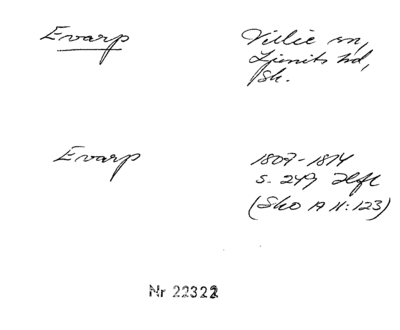 Evarp
Villie sn,
Ljunits hd,
Sk.
Evarp
1807-1814
s. 249 Hfl
(SkO A II:123)
Nr 22322